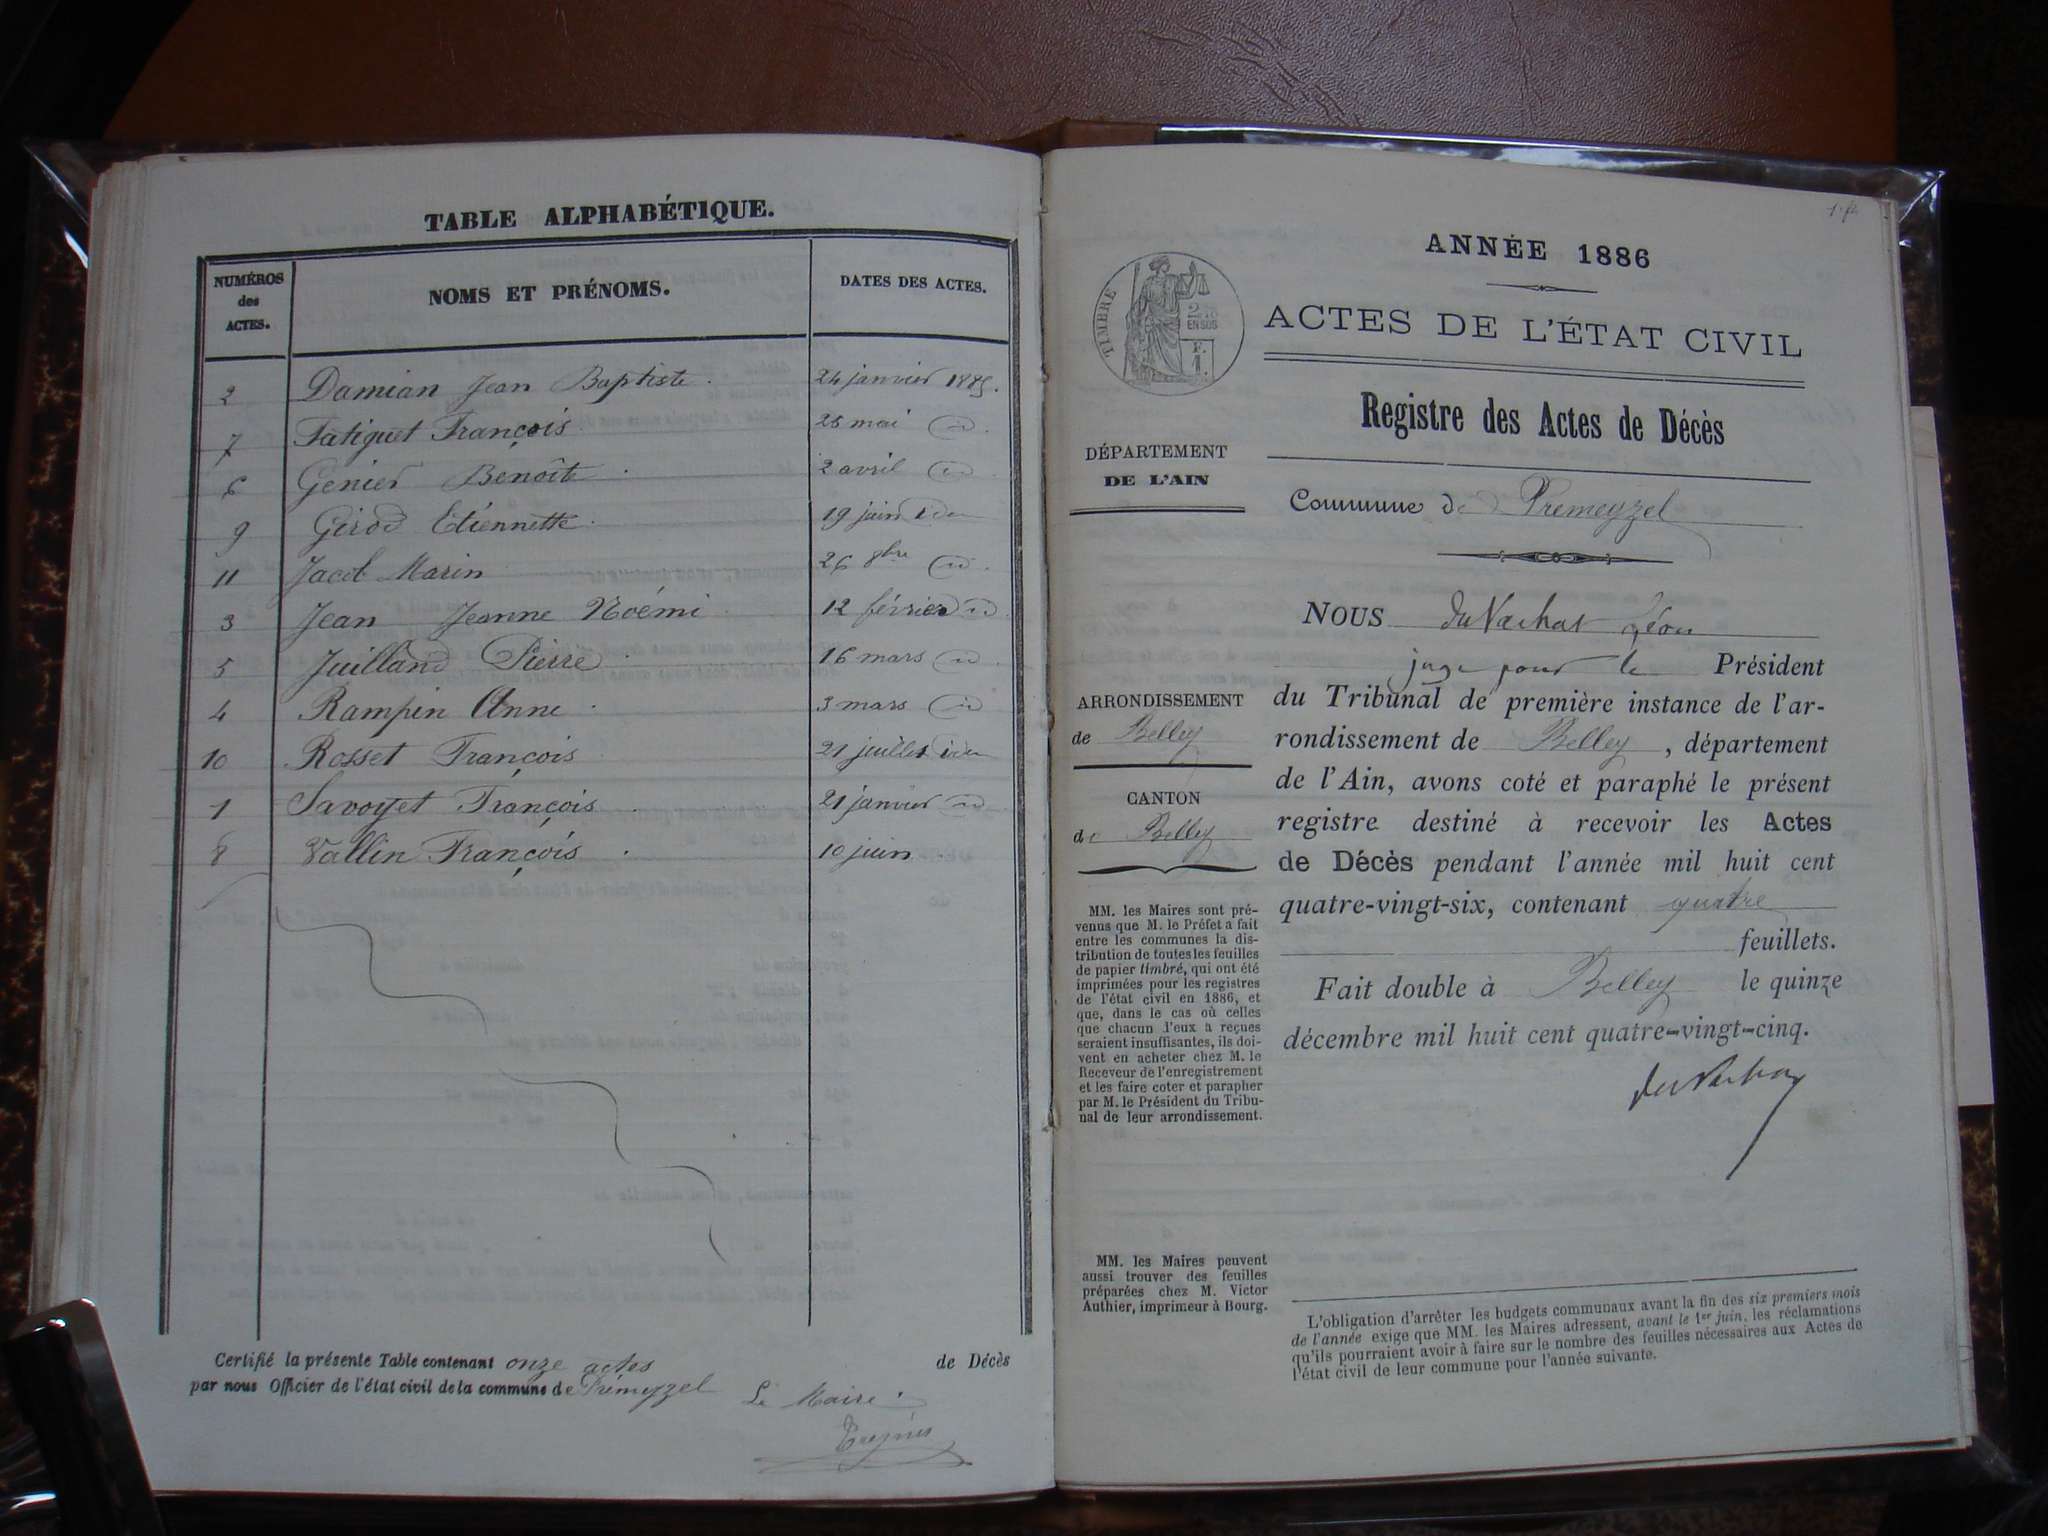 TABLE ALPHABÉTIQUE.
NUMÉROS des ACTES. NOMS ET PRÉNOMS. DATES DES ACTES.
2 Damian Jean Baptiste. 24 janvier 1885.
7 Fatiguet François. 25 mai id.
6 Genier Benoîte. 2 avril id.
9 Girod Etiennette. 19 juin idem
11 Jacob Marin 26 8bre id.
3 Jean Jeanne Noémi 12 février id.
5 Juilland Pierre. 16 mars id.
4 Rampin Anne. 3 mars id.
10 Rosset François 21 juillet idem
1 Savoyet François. 21 janvier id.
8 Vallin François. 10 juin.
Certifié la présente Table contenant onze actes de Décès
par nous Officier de l'état civil de la commune de Prémeyzel
Le Maire.
1er
ANNÉE 1886
ACTES DE L'ÉTAT CIVIL
TIMBRE
EN SUS
Registre des Actes de Décès
DÉPARTEMENT
DE L'AIN
Commune de Premeyzel
NOUS du Vachat Léon
juge pour le Président
du Tribunal de première instance de l'ar-
rondissement de Belley, département
de l'Ain, avons coté et paraphé le présent
registre destiné à recevoir les Actes
de Décès pendant l'année mil huit cent
quatre-vingt-six, contenant quatre
feuillets.
Fait double à Belley le quinze
décembre mil huit cent quatre-vingt-cinq.
du Vachat
ARRONDISSEMENT
de Belley
CANTON
de Belley
MM. les Maires sont pré-
venus que M. le Préfet a fait
entre les communes la dis-
tribution de toutes les feuilles
de papier timbré, qui ont été
imprimées pour les registres
de l'état civil en 1886, et
que, dans le cas où celles
que chacun d'eux a reçues
seraient insuffisantes, ils doi-
vent en acheter chez M. le
Receveur de l'enregistrement
et les faire coter et parapher
par M. le Président du Tribu-
nal de leur arrondissement.
MM. les Maires peuvent
aussi trouver des feuilles
préparées chez M. Victor
Authier, imprimeur à Bourg.
L'obligation d'arrêter les budgets communaux avant la fin des six premiers mois
de l'année exige que MM. les Maires adressent, avant le 1er juin, les réclamations
qu'ils pourraient avoir à faire sur le nombre des feuilles nécessaires aux Actes de
l'état civil de leur commune pour l'année suivante.